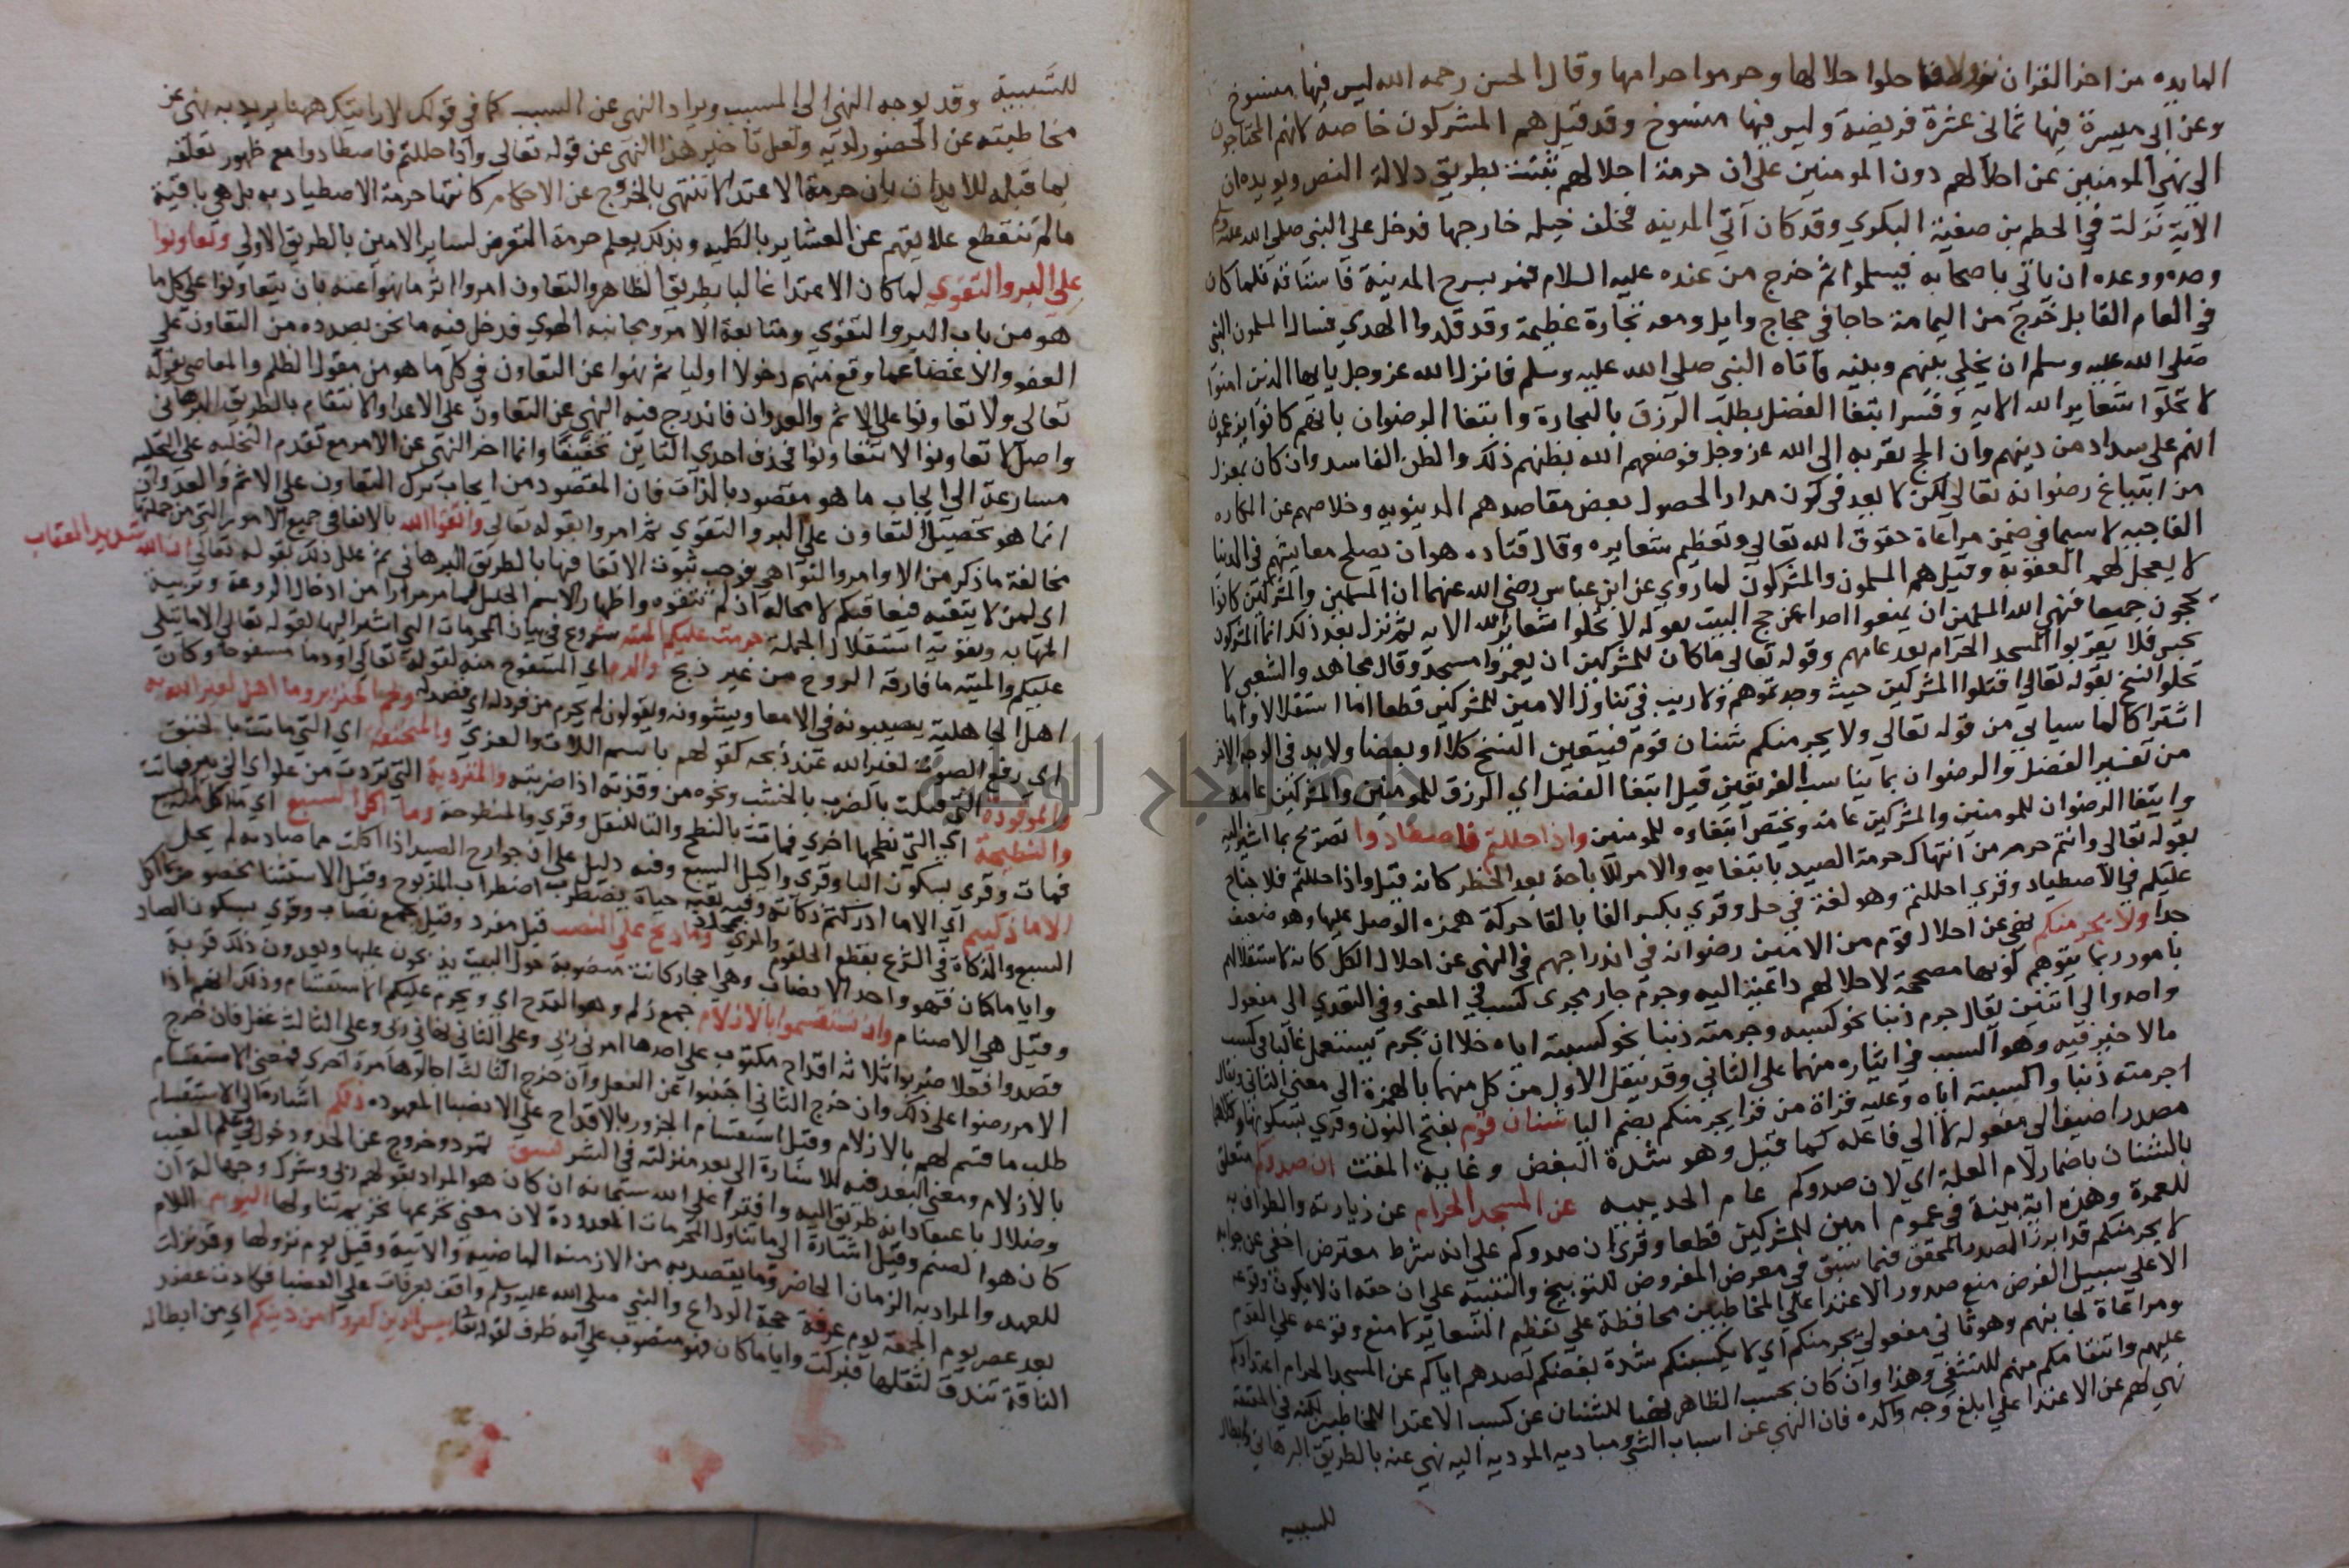 المايده من اخر القران نزولا فاحلوا حلالها وحرموا حرامها وقال الحسن رحمه الله ليس فيها منسوخ
وعن ابي ميسرة فيها ثماني عشرة فريضة وليس فيها منسوخ وقد قيل هم المشركون خاصة لانهم المحتاجون
الي نهي المومنين عن احلالهم دون المومنين علي ان حرمة احلالهم تثبت بطريق دلالة النص ويويده ان
الاية نزلت في الحطم بن ضبيعة البكري وقد كان اتي المدينه فخلف خيله خارجها فدخل علي النبي صلي الله عليه وسلم
وحده ووعده ان ياتي باصحابه فيسلموا ثم خرج من عنده عليه السلام فمر بسرح المدينة فاستاقه فلما كان
في العام القابل خرج من اليمامة حاجا في حجاج وايل ومعه تجارة عظيمة وقد قلدوا الهدي فسال المسلمون النبي
صلي الله عليه وسلم ان يخلي بينهم وبينه فاتاه النبي صلي الله عليه وسلم فانزل الله عز وجل يايها الذين امنوا
لا تحلوا شعاير الله الايه وفسر ابتغا الفضل بطلب الرزق بالتجارة وابتغا الرضوان بانهم كانوا يزعمون
انهم علي سداد من دينهم وان الحج يقربه الي الله عز وجل فوصفهم الله بظنهم ذلك والظن الفاسد وان كان بمعزل
من ابتباغ رضوانه تعالي لكن لا بعد في كون مدارا لحصول بعض مقاصدهم الدينويه وخلاصهم عن المكاره
العاجبه لا سيما في ضمن مراعاة حقوق الله تعالي وتعظيم شعايره وقال قتاده هو ان يصلح معايشهم في الدنيا
لا يعجل لهم العقوبة وقيل هم المسلمون والمشركون لما روي عن ابن عباس رضي الله عنهما ان المسلمين والمشركين كانوا
يحجون جميعا فنهي الله المسلمين ان يمنعوا احدا عن حج البيت بقوله لا تحلوا شعاير الله الايه ثم نزل بعد ذلك انما المشركون
نجس فلا يقربوا المسجد الحرام بعد عامهم وقوله تعالي ما كان للمشركين ان يعمروا مسجد وقال مجاهد والشعبي لا
تحلوا نسخ بقوله تعالي اقتلوا المشركين حيث وجدتموهم ولا ريب في تناول الامين للمشركين قطعا اما استقلالا واما
اشتراكا لما سياتي من قوله تعالي ولا يجرمنكم شنان قوم فيتعين النسخ كلا او بعضا ولا بد في الوجه الاخر
من تفسير الفضل والرضوان بما يناسب الفريقين قيل ابتغا الفضل اي الرزق للمومنين والمشركين عامة
وابتغا الرضوان للمومنين والمشركين عامة ويختص ابتغاوه للمومنين واذا حللتم فاصطادوا تصريح بما اشير اليه
بقوله تعالي وانتم حرم من انتهاك حرمة الصيد بابتغايه والامر للاباحة بعد الحظر كانه قيل واذا حللتم فلا جناح
عليكم في الاصطياد وقري احللتم وهو لغة في حل وقري بكسر الفا بالقا حركة همزه الوصل عليها وهو ضعيف
جدا ولا يجرمنكم نهي عن احلال قوم من الامين رضوانه في اندراجهم في النهي عن احلال الكل كانه لاستقلالهم
بامور ربما يتوهم كونها مصححة لاحلالهم داعية اليه وجرم جار مجري كسب في المعني وفي التعدي الي مفعول
واحد والي اثنين يقال جرم ذنبا نحو كسبه وجرمته ذنبا نحو كسبته اياه خلا ان يجرم يستعمل غالبا في كسب
مالا خير فيه وهو السبب في ايثاره منهما علي الثاني وقد ينقل الاول من كل منهما بالهمزة الي معني الثاني ويقال
اجرمته ذنبا واكسبته اياه وعليه قراة من قرا يجرمنكم بضم اليا شنان قوم بفتح النون وقري بسكونها وكلاهما
مصدر اضيف الي مفعوله لا الي فاعله كما قيل وهو شدة البغض وغاية المقت ان صدوكم متعلق
بالشنان باضمار لام العلة اي لان صدوكم عام الحديبيه عن المسجد الحرام عن زيارته والطواف به
للعمرة وهذه اية بينة في عموم امين للمشركين قطعا وقري ان صدوكم علي انه شرط معترض اغني عن جوابه
لا يجرمنكم قد ابرز الصدر المحقق فيما سبق في معرض المفروض للتوبيخ والتنبيه علي ان حقه ان لا يكون وقوعه
الا علي سبيل الفرض منع صدور الاعتدا علي المخاطبين محافظة علي تعظيم الشعاير لا منع وقوعه علي القوم
ومراعاة لجانبهم وهو ثاني مفعولي يجرمنكم اي لا يكسبنكم شدة بغضكم لصدهم اياكم عن المسجد الحرام اعتداكم
عليهم وانتقامكم منهم للتشفي وهذا وان كان بحسب الظاهر نهيا للشنان عن كسب الاعتدا للمخاطبين لكنه في الحقيقة
نهي لهم عن الاعتدا علي ابلغ وجه واكده فان النهي عن اسباب الشي ومباديه الموديه اليه نهي عنه بالطريق البرهاني وابطال
للسببيه
للسَّببية وقد يوجه النهي الي المسبب ويراد النهي عن السبب كما في قولك لا ارينك ههنا يريد به نهي عن
مخاطبته عن الحضور لديه ولعل تاخير هذا النهي عن قوله تعالي واذا حللتم فاصطادوا مع ظهور تعلقه
بما قبله للايدان بان حرمة الاعتدا لا تنتهي بالخروج عن الاحرام كانتها حرمة الاصطياد به بل هي باقية
مالم تنقطع علايقهم عن العشاير بالكليه وبذلك يعلم حرمة التعرض لساير الامين بالطريق الاولي وتعاونوا
علي البر والتقوي لما كان الاعتدا غالبا بطريق الظاهر والتعاون امروا اثر ما نهوا عنه بان يتعاونوا علي كل ما
هو من باب البر والتقوي ومتابعة الامر ومجانبه الهوي فدخل فيه ما نحن بصدده من التعاون علي
العفو والاغضا عما وقع منهم دخولا اوليا ثم نهوا عن التعاون في كل ما هو من مقولة الظلم والمعاصي بقوله
تعالي ولا تعاونوا علي الاثم والعدوان فاندرج فيه النهي عن التعاون علي الاعدا والانتقام بالطريق البرهاني
واصل لا تعاونوا لا تتعاونوا فحذف احدي التاين تخفيفا وانما اخر النهي عن الامر مع تقدم التخليه علي التحليه
مسارعة الي ايجاب ما هو مقصود بالذات فان المقصود من ايجاب ترك التعاون علي الاثم والعدوان
انما هو تحصيل التعاون علي البر والتقوي ثم امروا بقوله تعالي واتقوا الله بالاتقا في جميع الامور التي من جملتها
مخالفة ما ذكر من الاوامر والنواهي فوجب ثبوت الاتقا فيها بالطريق البرهاني ثم علل ذلك بقوله تعالي ان الله شديد العقاب
اي لمن لا يتقيه فيعاقبكم لا محاله ان لم تتقوه واظهار الاسم الجليل لما مر مرارا من ادخال الروعة وتربية
المهابه وتقوية استقلال الجملة حرمت عليكم الميته شروع في بيان المحرمات التي اشير اليها بقوله تعالي الا ما يتلي
عليكم والميته ما فارقه الروح من غير ذبح والدم اي المسفوح منه لقوله تعالي او دما مسفوحا وكان
اهل الجاهلية يصبونه في الامعا ويشوونه ويقولون لم يحرم من فزد له اي فصد له ولحم الخنزير وما اهل لغير الله به
اي رفع الصوت لغير الله عند ذبحه كقولهم باسم اللات والعزي والمنخنقة اي التي ماتت بالخنق
والموقوذة التي قتلت بالضرب بالخشب ونحوه من وقذته اذا ضربته والمتردية التي تردت من علو او الي بير فماتت
والنطيحة اي التي نطحها اخري فماتت بالنطح والتا للنقل وقري والمنطوحة وما اكل السبع اي ما اكل السبع
فمات وقري بسكون البا وقري واكيل السبع وفيه دليل علي ان جوارح الصيد اذا اكلت مما صادته لم يحل
الا ما ذكيتم اي الا ما ادركتم ذكاته وفيه بقيه حياة يضطرب اضطراب المذبوح وقيل الاستثنا مخصوص بما اكل
السبع والذكاة في الشرع بقطع الحلقوم والمري بمحدد وما ذبح علي النصب قيل مفرد وقيل جمع نصاب وقري بسكون الصاد
وايا ما كان فهو واحد الانصاب وهي احجار كانت منصوبة حول البيت يذبحون عليها ويعدون ذلك قربة
وقيل هي الاصنام وان تستقسموا بالازلام جمع زلم وهو القدح اي وحرم عليكم الاستقسام وذلك انهم اذا
قصدوا فعلا ضربوا ثلاثة اقداح مكتوب علي احدها امرني ربي وعلي الثاني نهاني ربي وعلي الثالث غفل فان خرج
الامر مضوا علي ذلك وان خرج الثاني اجتنبوا عن الفعل وان خرج الثالث اجالوها مرة اخري فمعني الاستقسام
طلب ما قسم لهم بالازلام وقيل استقسام الجزور بالاقداح علي الانصبا المعهوده ذلكم اشارة الي الاستقسام
بالازلام ومعني البعد فيه للاشارة الي بعد منزلته في الشر فسق تمرد وخروج عن الحد ودخول في علم الغيب
وضلال باعتقاد انه طريق اليه وافترا علي الله سبحانه ان كان هو المراد بقولهم ربي وشرك وجهالة ان
كان هو الصنم وقيل اشارة الي ما تناول المحرمات المعدودة لان معني تحريمها تحريم تناولها اليوم اللام
للعهد والمراد به الزمان الحاضر وما يتصل به من الازمنه الماضيه والاتية وقيل يوم نزولها وقد نزلت
بعد عصر يوم الجمعة يوم عرفة حجة الوداع والنبي صلي الله عليه وسلم واقف بعرفات علي العضبا فكادت عضد
الناقة تندق لثقلها فبركت وايا ما كان فهو منصوب علي انه ظرف لقوله تعالي يئس الذين كفروا من دينكم اي من ابطاله
جامعة النجاح الوطنية